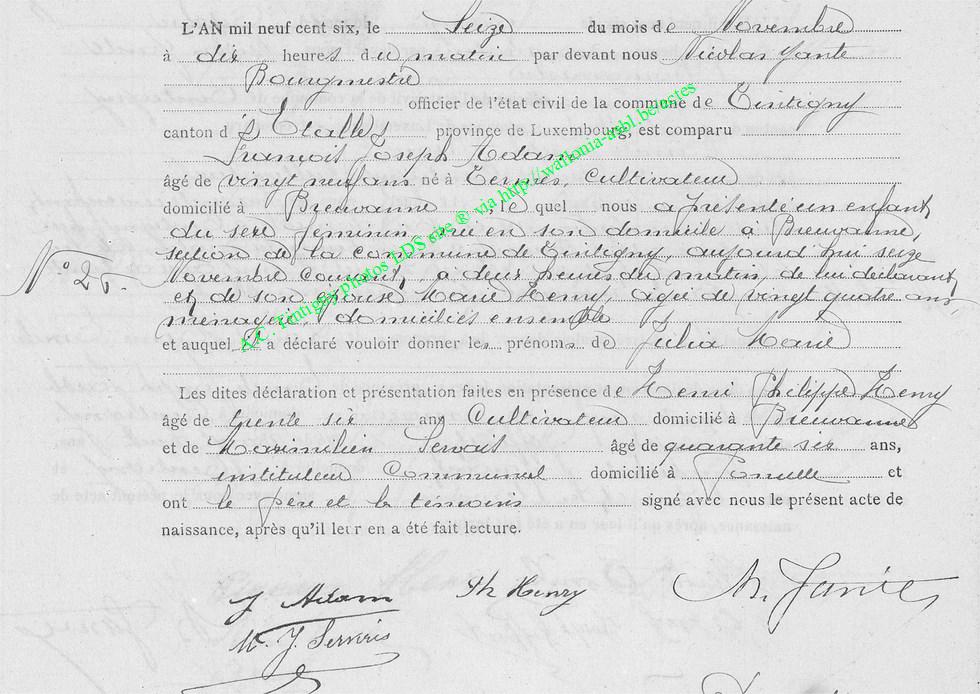 L'AN mil neuf cent six, le Seize du mois de Novembre
à dix heures du matin par devant nous Nicolas
Bourgmestre
officier de l'état civil de la commune de Tintigny
canton d'Etalle province de Luxembourg, est comparu
François Joseph Adam
âgé de vingt neuf ans né à Termes, Cultivateur
domicilié à Breuvanne, le quel nous a présenté un enfant
du sexe féminin née en son domicile à Breuvanne,
section de la commune de Tintigny, aujourd'hui seize
Novembre courant, à deux heures du matin, de lui déclarant
N° 25.
et de son épouse Marie Henry, agée de vingt quatre ans
ménagère, domiciliés ensemble
et auquel il a déclaré vouloir donner les prénoms de Julia Marie
Les dites déclaration et présentation faites en présence de Henri Philippe Henry
âgé de trente six ans Cultivateur domicilié à Breuvanne
et de Maximilien Servais âgé de quarante six ans,
instituteur Communal domicilié à et
ont le père et les témoins signé avec nous le présent acte de
naissance, après qu'il leur en a été fait lecture.
J Adam Ph Henry
M. J. Servais
A.C. Tintigny photos LDS site ® via http://wallonia-asbl.be/actes